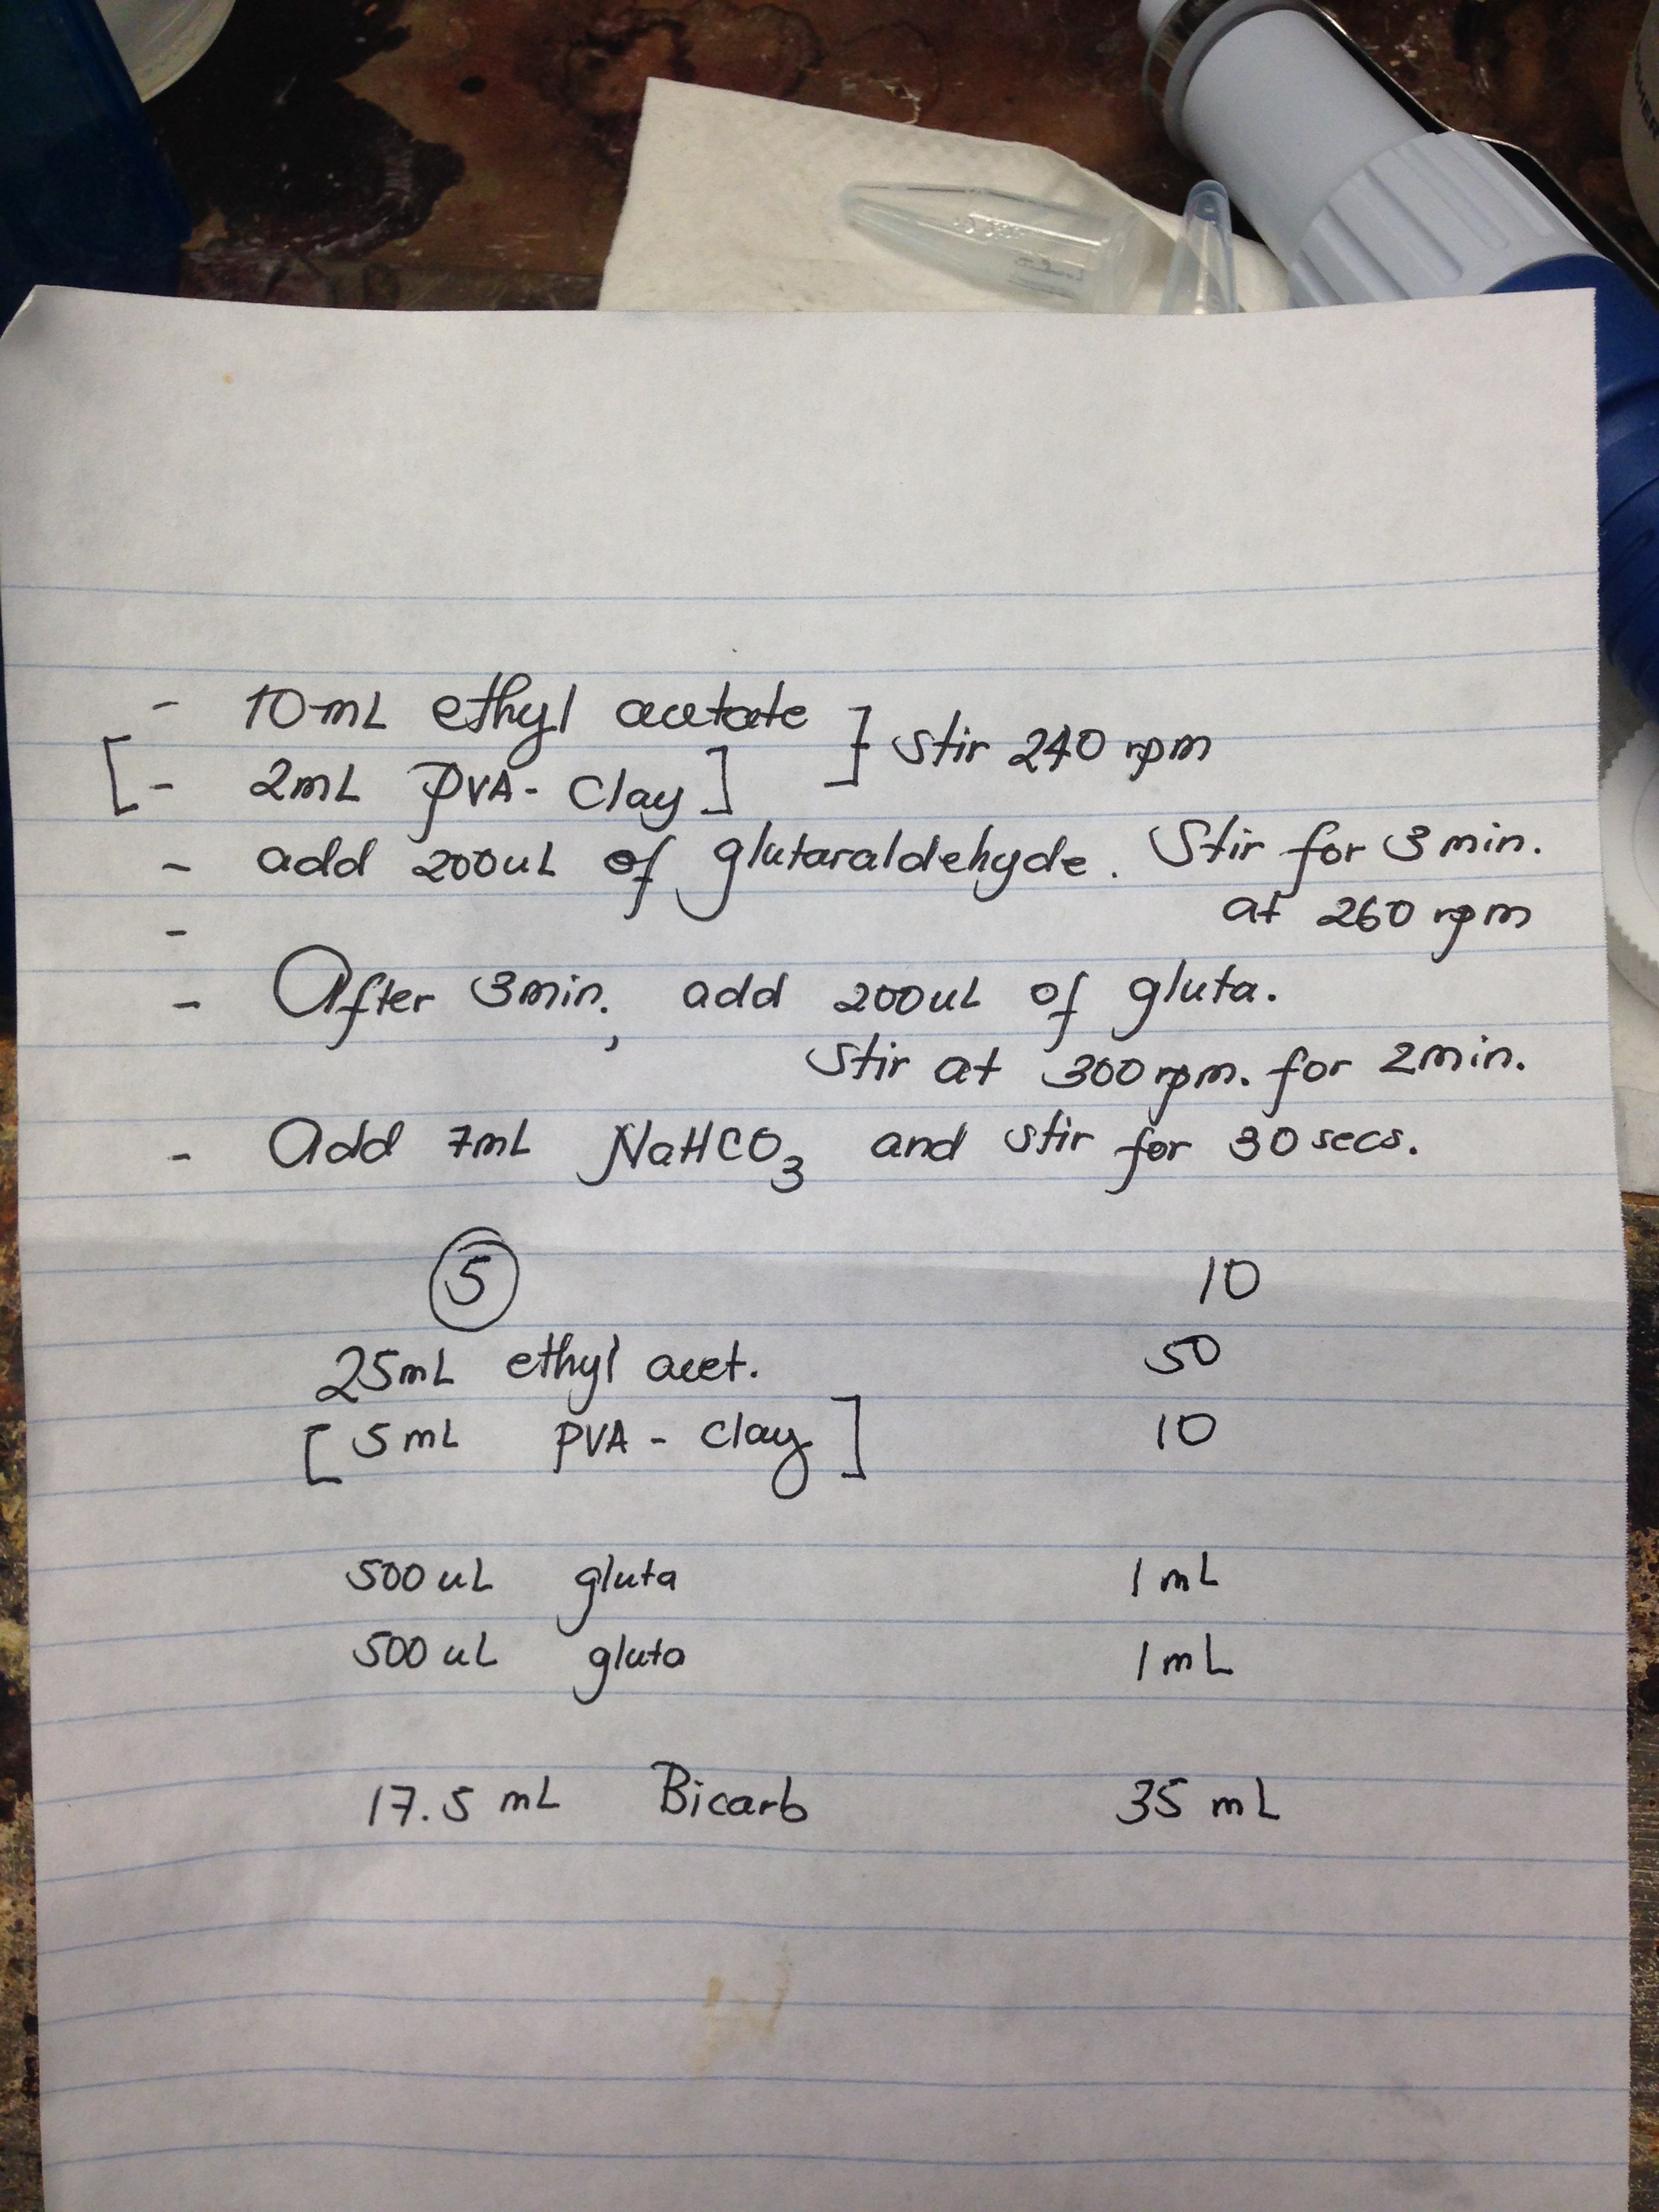 - 10mL ethyl acetate ] stir 240 rpm
[- 2mL PVA-Clay]
- add 200uL of glutaraldehyde. Stir for 3min.
at 260 rpm
-
- After 3min., add 200uL of gluta.
Stir at 300rpm. for 2min.
- Add 7mL NaHCO3 and stir for 30secs.
5 10
25mL ethyl acet. 50
[5mL PVA-Clay] 10
500uL gluta 1mL
500uL gluta 1mL
17.5 mL Bicarb 35 mL